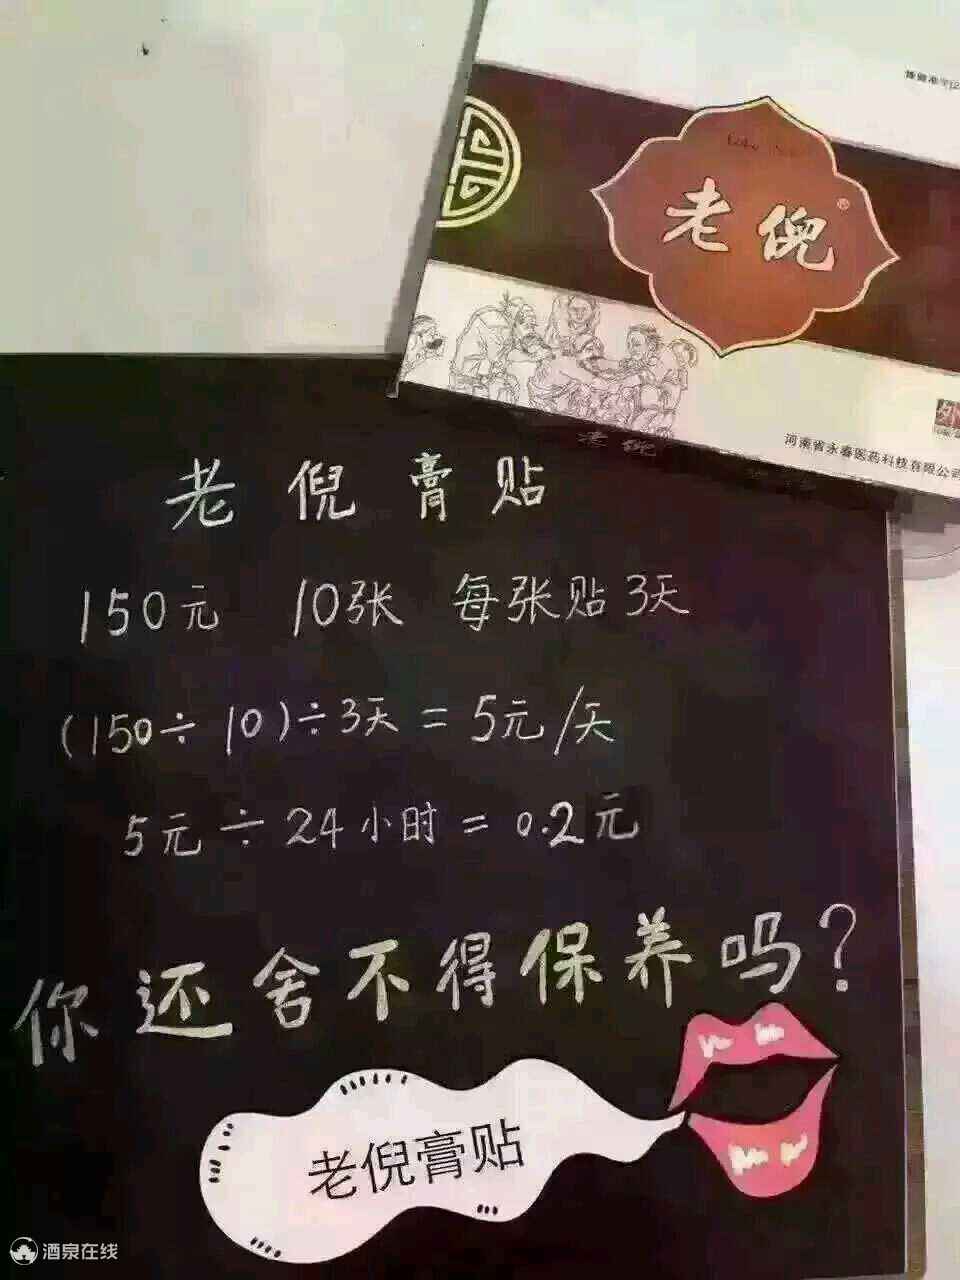 老倪®
河南省永春医药科技有限公司
老倪
老倪膏贴
150元 10张 每张贴3天
(150÷10)÷3天=5元/天
5元÷24小时=0.2元
你还舍不得保养吗?
老倪膏贴
酒泉在线